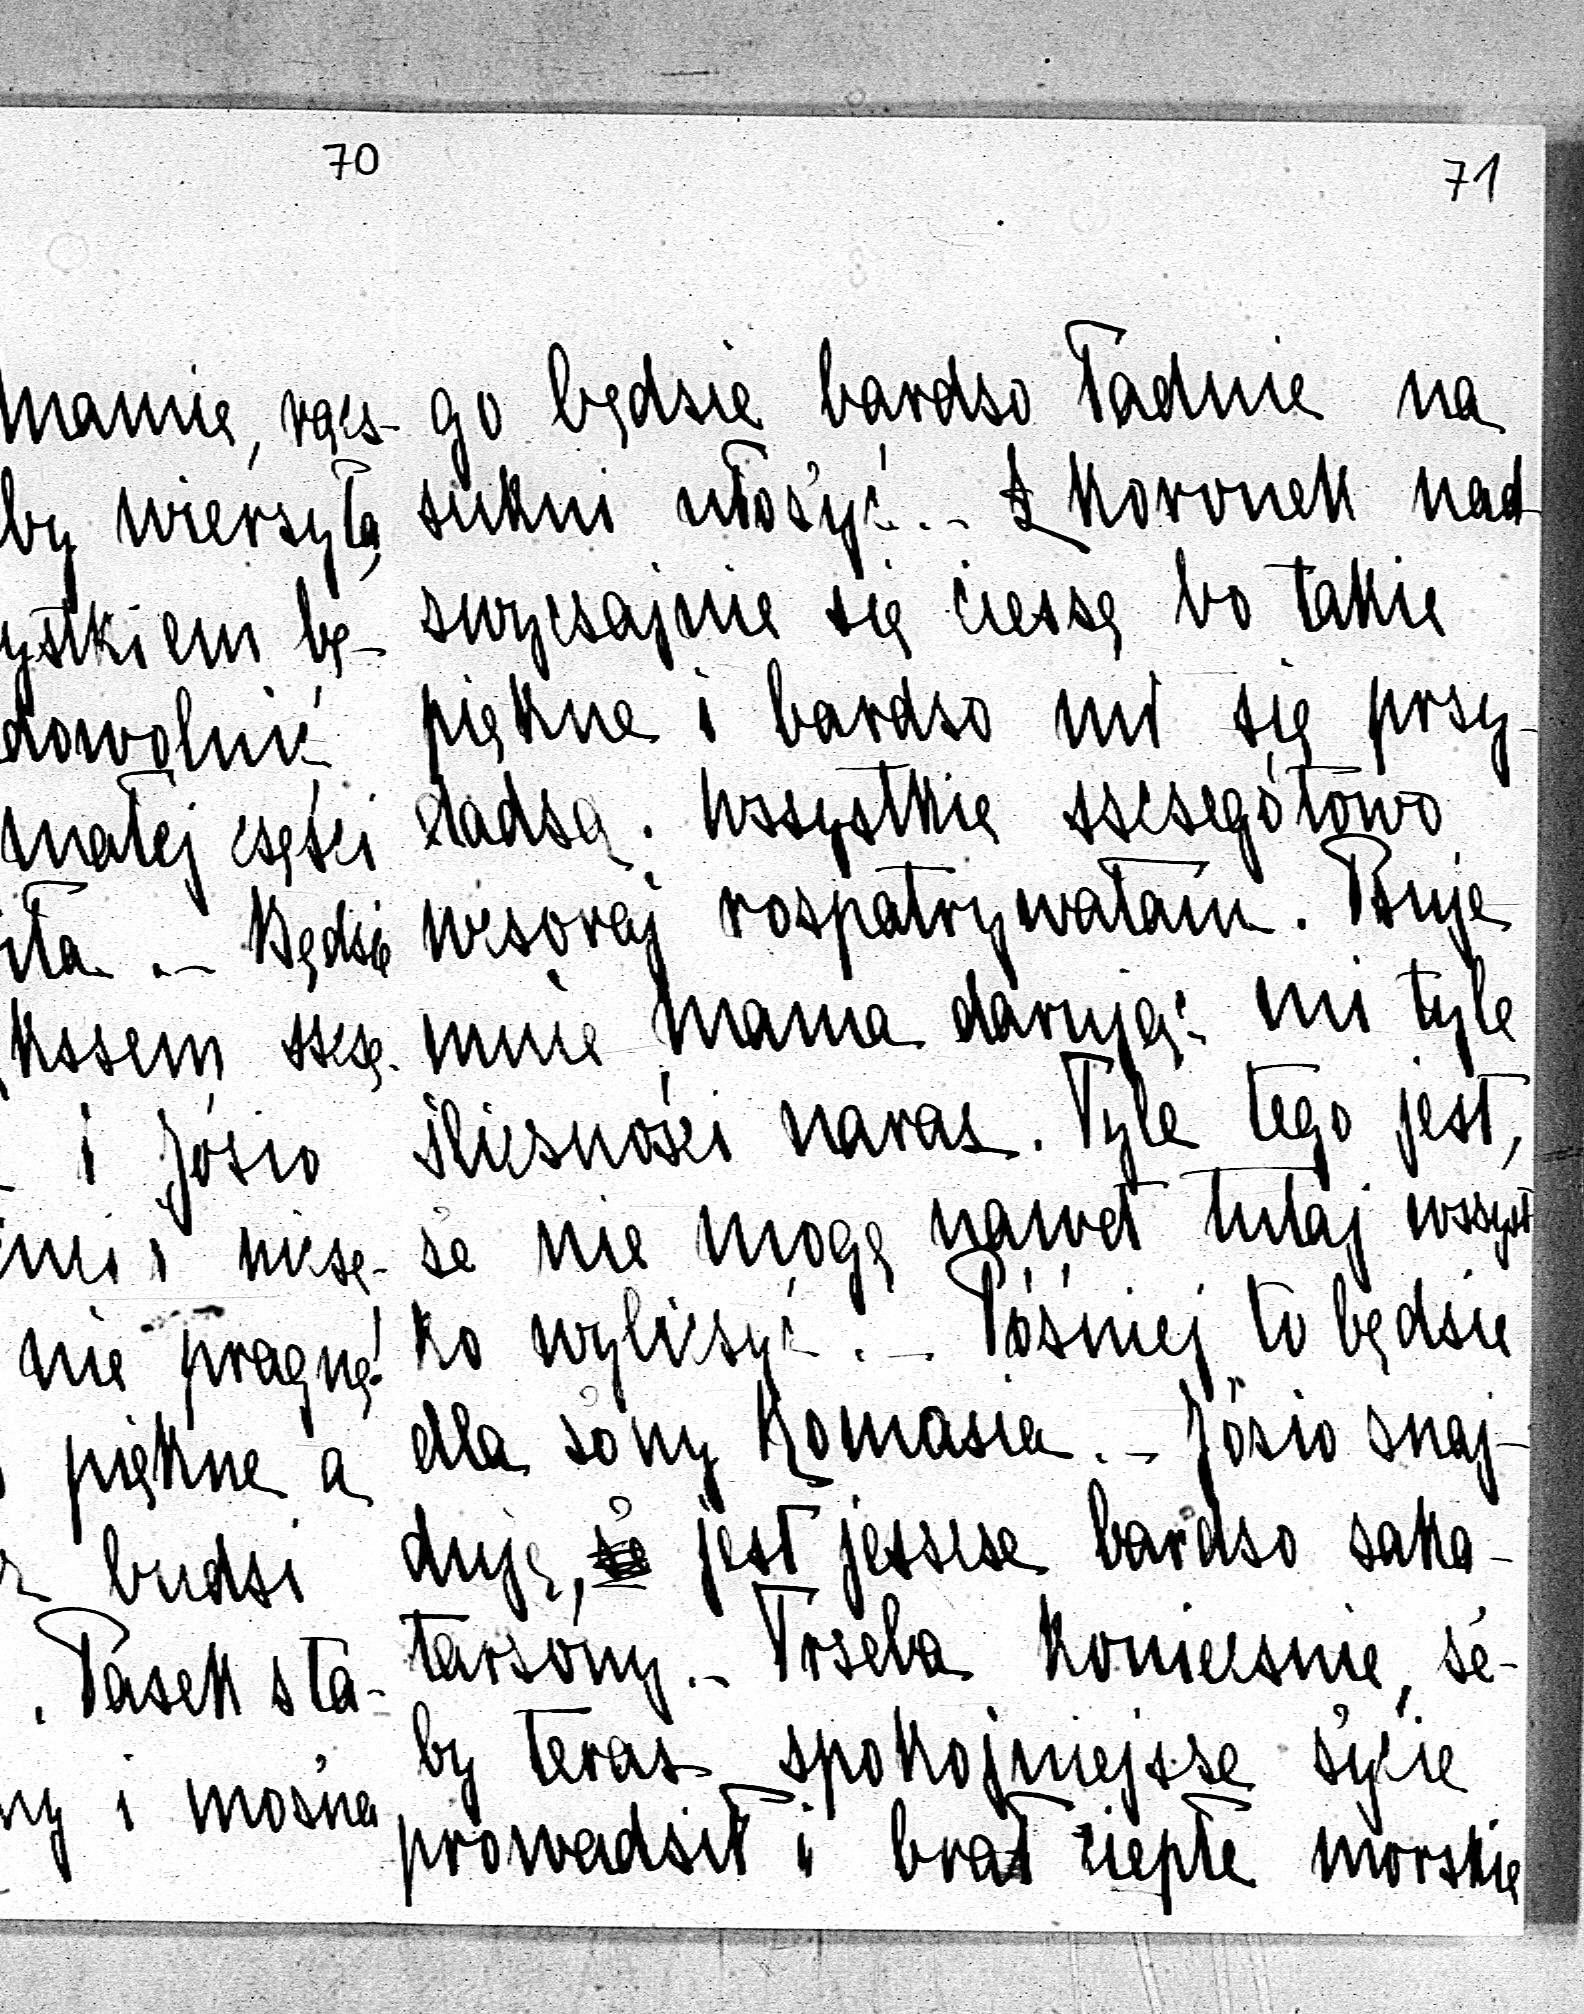 70
mamie, ręcz-
by wierzyła,
ystkiem bę-
dowolnić
małej części
iła .- Będzie
kszem szczę-
i Józio
nie pragnę!
piękne a
budzi
. Pasek sta-
ny i można
71
go będzie bardzo ładnie na
sukni ułożyć .- Z koronek nad
zwyczajnie się cieszę bo takie
piękne i bardzo mi się przy-
dadzą. Wszystkie szczegółowo
wczoraj rozpatrywałam. Psuje
mnie Mama darując mi tyle
śliczności naraz. Tyle tego jest,
że nie mogę nawet tutaj wszyst
ko wyliczyć .- Później to będzie
dla żony Romasia .- Józio znaj-
duję, jest jeszcze bardzo zaka-
tarzony .- Trzeba koniecznie, że-
by teraz spokojniejsze życie
prowadził i brał ciepłe morskie